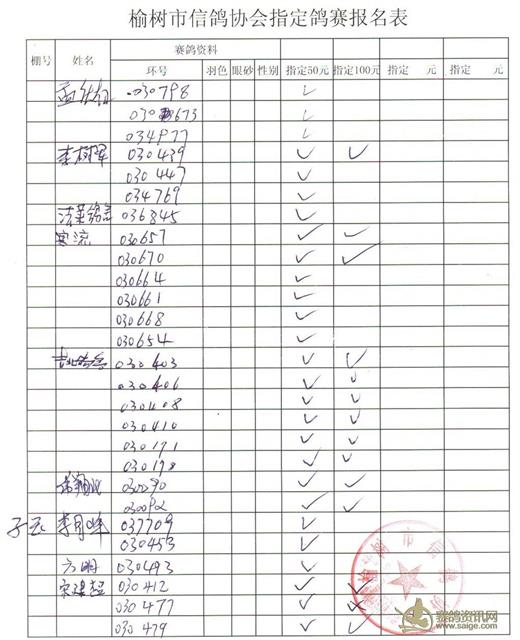 榆树市信鸽协会指定鸽赛报名表
棚号 姓名 赛鸽资料
环号 羽色 眼砂 性别 指定50元 指定100元 指定 元 指定 元
030798 ✓
673 ✓
034977 ✓
李树军 030439 ✓ ✓
030447 ✓
034769 ✓
036845 ✓
寒流 030657 ✓ ✓
030670 ✓ ✓
030664 ✓
030661 ✓
030668 ✓
030654 ✓
030403 ✓ ✓
030406 ✓ ✓
030408 ✓ ✓
030410 ✓ ✓
030171 ✓ ✓
030178 ✓ ✓
030090 ✓ ✓
030092 ✓ ✓
李月峰 037709 ✓
030453 ✓
方明 030493 ✓
030412 ✓ ✓
030477 ✓
030479 ✓ ✓
榆树市信鸽协会
赛鸽资讯网
www.saige.com